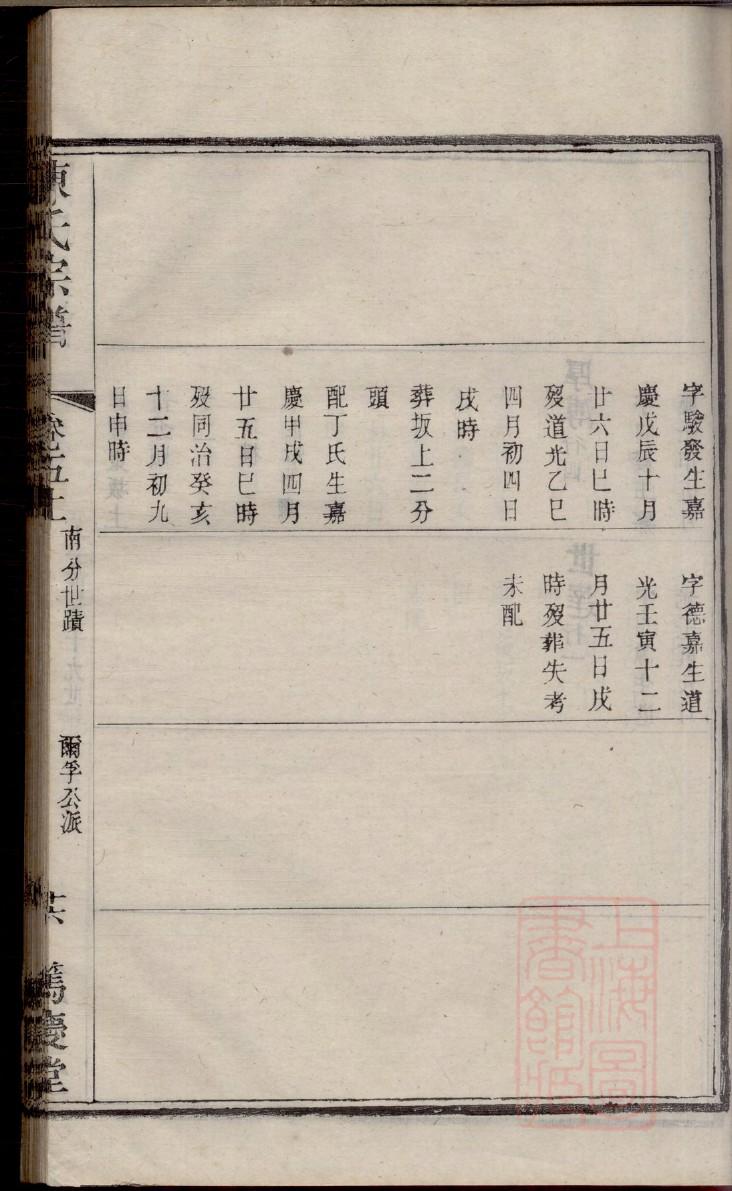 字驗發生嘉
慶戊辰十月
廿六日巳時
歿道光乙巳
四月初四日
戌時
葬坂上二分
頭
配丁氏生嘉
慶甲戌四月
廿五日巳時
歿同治癸亥
十二月初九
日申時
字德嘉生道
光壬寅十二
月廿五日戌
時歿葬失考
未配
陳氏宗譜
卷之五上
南分世蹟
爾孚公派
篤慶堂
上海圖
書館藏